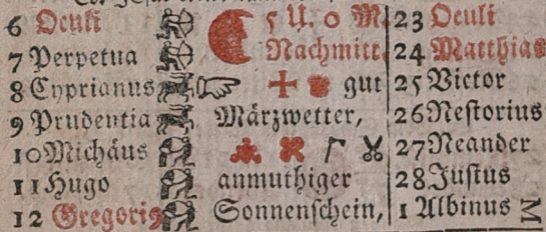 6 Oculi 5 U. 0 M. 23 Oculi
7 Perpetua Nachmitt. 24 Matthias
8 Cyprianus gut 25 Victor
9 Prudentia Märzwetter, 26 Nestorius
10 Michäus 27 Neander
11 Hugo anmuthiger 28 Justus
12 Gregorius Sonnenschein, 1 Albinus M